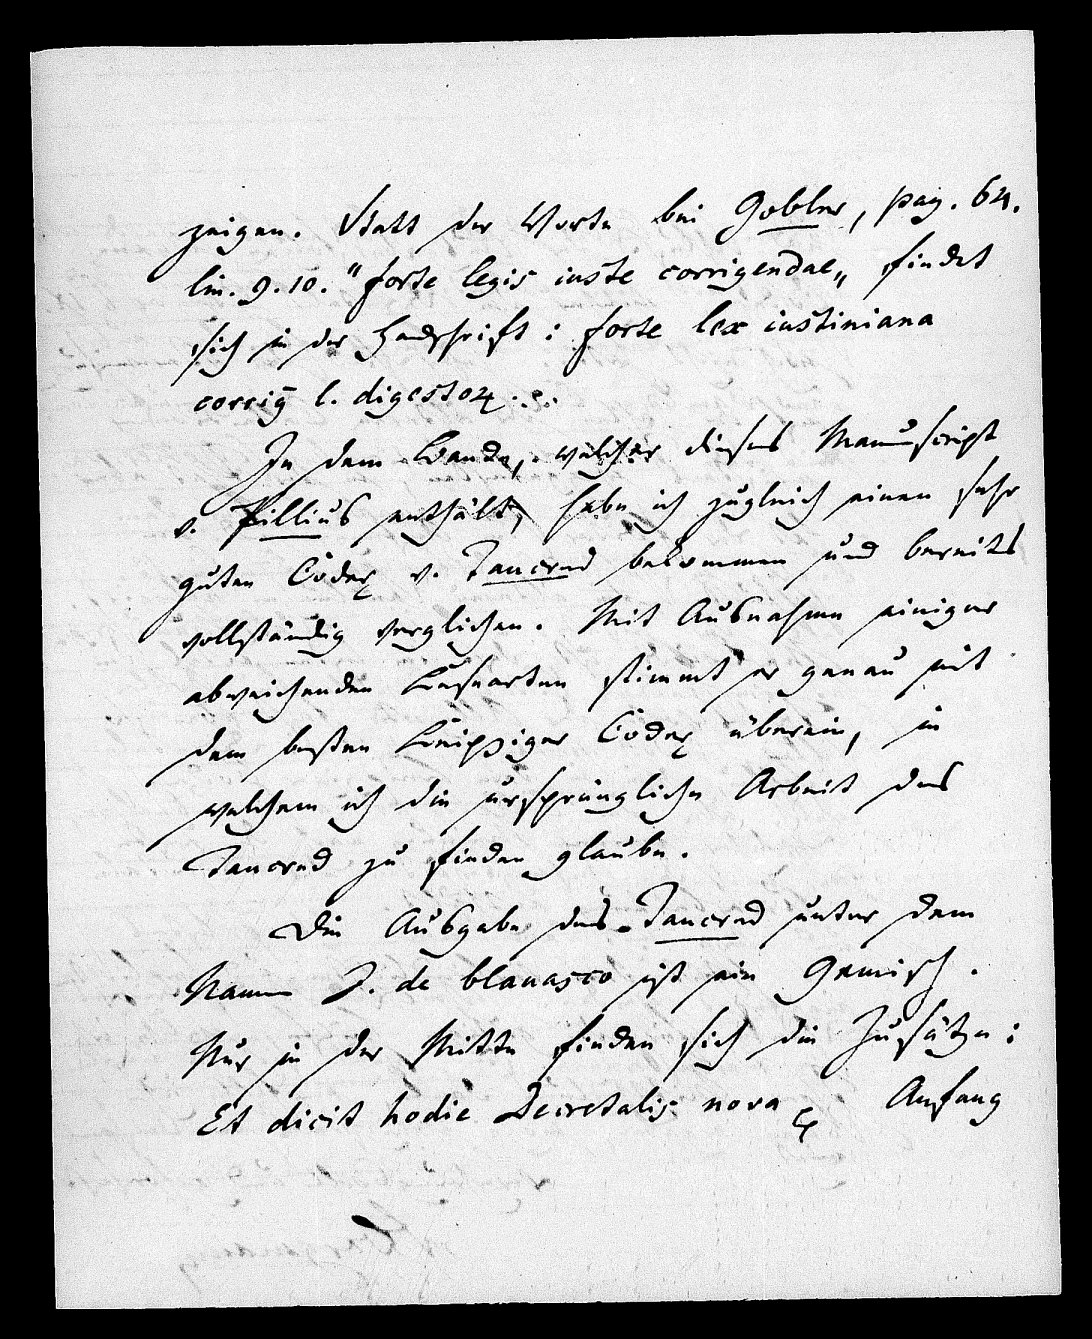 zeigen. Statt der Worte bei Gobler, pag. 64.
lin. 9.10. "forte legis iuste corrigendae„ findet
sich in der Handschrift: forte lex iustiniana
corrig̅ l. digestoꝝ...
In dem Bande, welcher dieses Manuscript
v. Pillius enthält, habe ich zugleich einen sehr
guten Codex v. Tancred bekommen und bereits
vollständig verglichen. Mit Ausnahme einiger
abweichenden Lesearten stimmt er genau mit
dem besten Leipziger Codex überein, in
welchem ich die ursprüngliche Arbeit des
Tancred zu finden glaube.
Die Ausgabe des Tancred unter dem
Namen J. de blanasco ist ein Gemisch.
Nur in der Mitte finden sich die Zusätze:
Et dicit hodie Decretalis nova Anfang